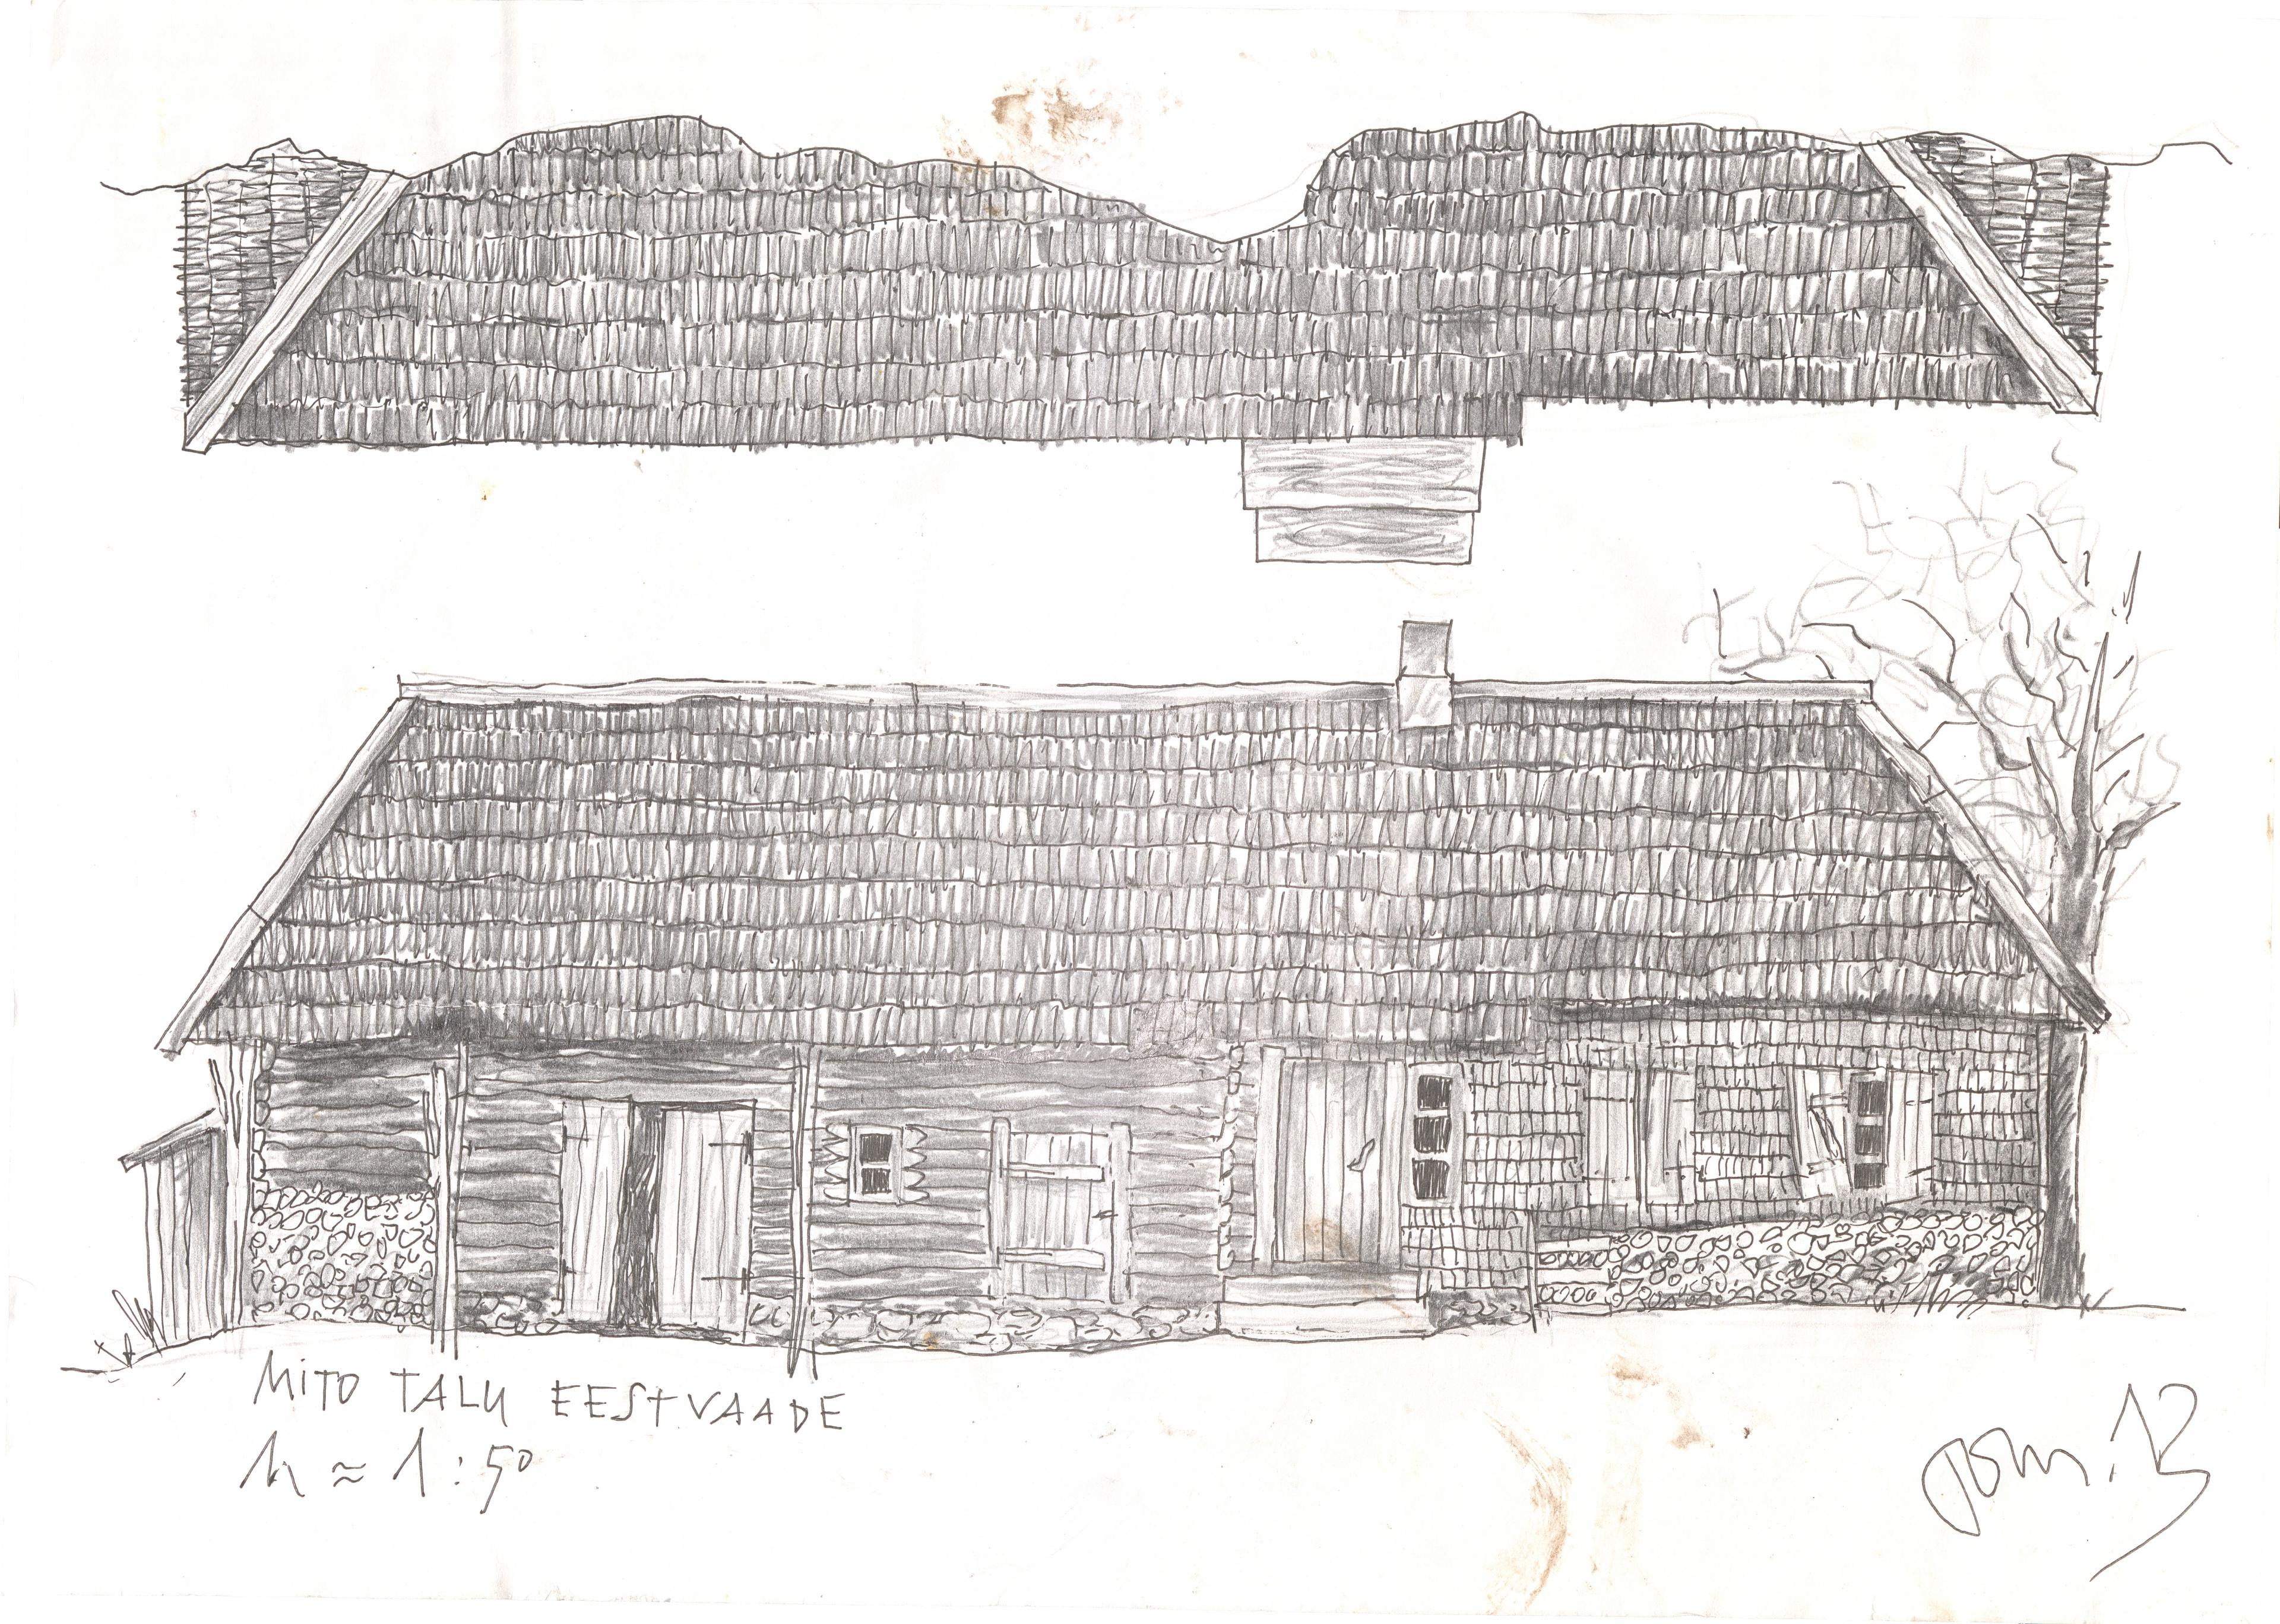 MITO TALU EESTVAADE
M ≈ 1:50